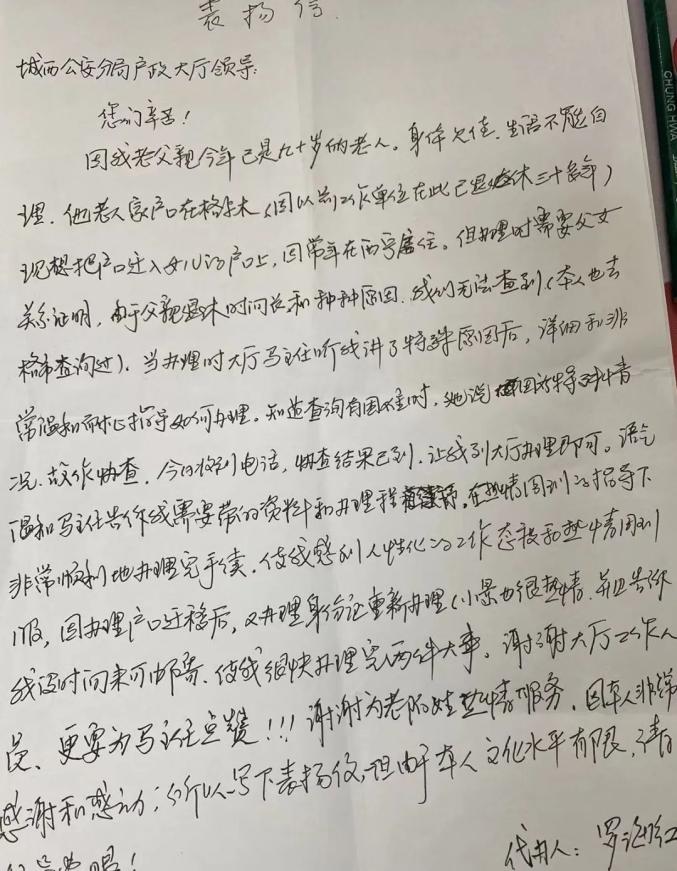 表扬信
城西公安分局户政大厅领导:
您们辛苦!
因我老父亲今年已是九十岁的老人。身体欠佳、生活不能自
理、他老人家户口在格尔木(因以前工作单位在此已退休三十多年)
现想把户口迁入女儿的户口上,因常年在西宁居住。但办理时需要父女
关系证明,由于父亲退休时间长和种种原因、线别无法查到(本人也去
格市查询过)、当办理时大厅马主任听我讲了特殊原因后,详细和非
常温和耐心指导如何办理。知道查询有困难时,她说因为特殊情
况、故作协查,今日收到电话,协查结果已到、让我到大厅办理即可。语气
温和马主任告诉我需要带的资料和办理程序,在热情周到的指导下
非常顺利地办理完手续。使我感到人性化的工作态度和热情周到
服,因办理户口迁移后,又办理身份证重新办理(小景也很热情、并且告诉
我没时间来可邮寄、使我很快办理完两件大事。谢谢大厅工作人
员、更要为马主任点赞!!!谢谢为老百姓热情服务,因本人非常
感谢和感动;所以写下表扬信,但由于本人文化水平有限,请
代书人:罗
CHUNG HWA